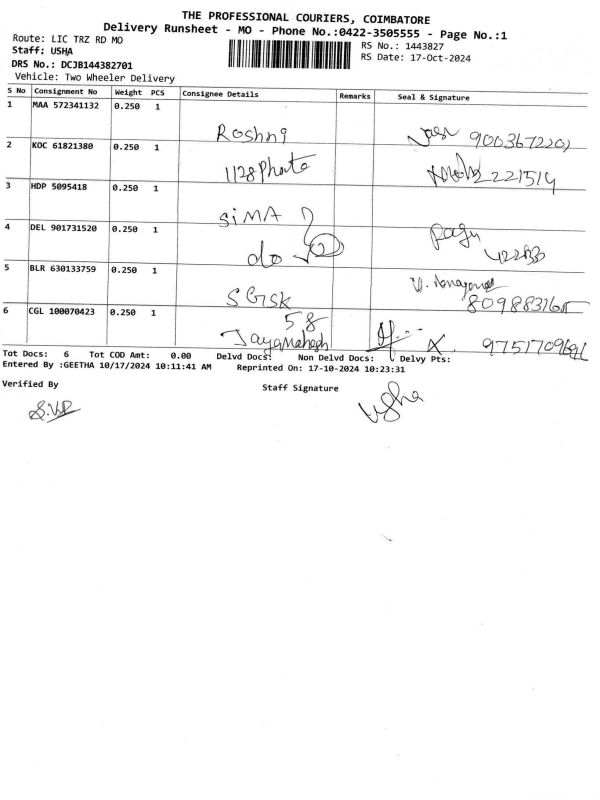 THE PROFESSIONAL COURIERS, COIMBATORE
Delivery Runsheet - MO - Phone No.:0422-3505555 - Page No.:1
Route: LIC TRZ RD MO
RS No.: 1443827
Staff: USHA
RS Date: 17-Oct-2024
DRS No.: DCJB144382701
Vehicle: Two Wheeler Delivery
S No Consignment No Weight PCS Consignee Details Remarks Seal & Signature
1 MAA 572341132 0.250 1
Roshni 9003672202
2 KOC 61821380 0.250 1
1128 Photo 221514
3 HDP 5095418 0.250 1
SiMA
4 DEL 901731520 0.250 1
do 2 Ragu
5 BLR 630133759 0.250 1
SGISK
6 CGL 100070423 0.250 1
58
Jayamahesh X
Tot Docs: 6 Tot COD Amt: 0.00 Delvd Docs: Non Delvd Docs: Delvy Pts:
Entered By :GEETHA 10/17/2024 10:11:41 AM Reprinted On: 17-10-2024 10:23:31
Verified By Staff Signature
Usha